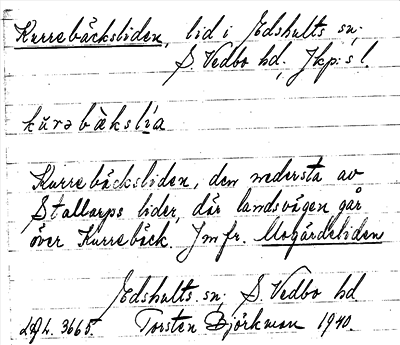 Kurrebäcksliden, lid i Edshults sn;
S. Vedbo hd; Jkp:s l.
kŭrəbäkslia
Kurrebäcksliden, den nedersta av
Stallarps lider, där landsvägen går
över Kurrebäck. Jmfr. Mogärdeliden
Edshults sn; S. Vedbo hd
3665. Torsten Björkman 1940.